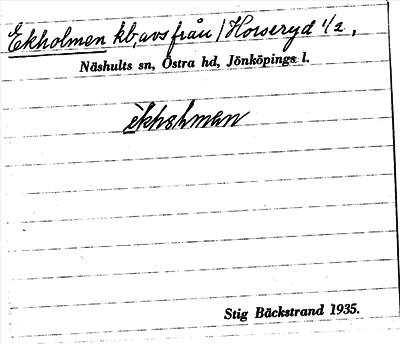 Ekholmen kb, avs från / Horseryd 1/2,
Näshults sn, Östra hd, Jönköpings l.
èkhɷlmən
Stig Bäckstrand 1935.